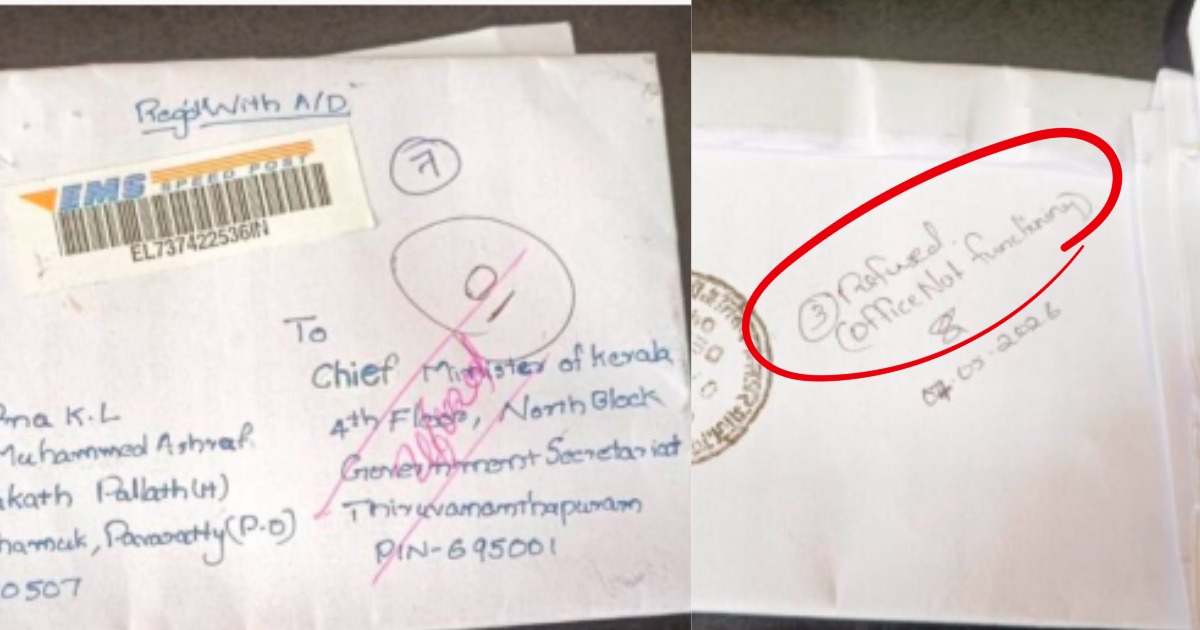 Regd With A/D
EMS SPEED POST
EL737422536IN
To
Chief Minister of Kerala
4th Floor, North Block
Government Secretariat
Thiruvananthapuram
PIN-695001
K.L
Muhammed Ashraf
kath Pallath(H)
(P.O)
0507
3 Refused.
(office Not functioning)
07-05-2026